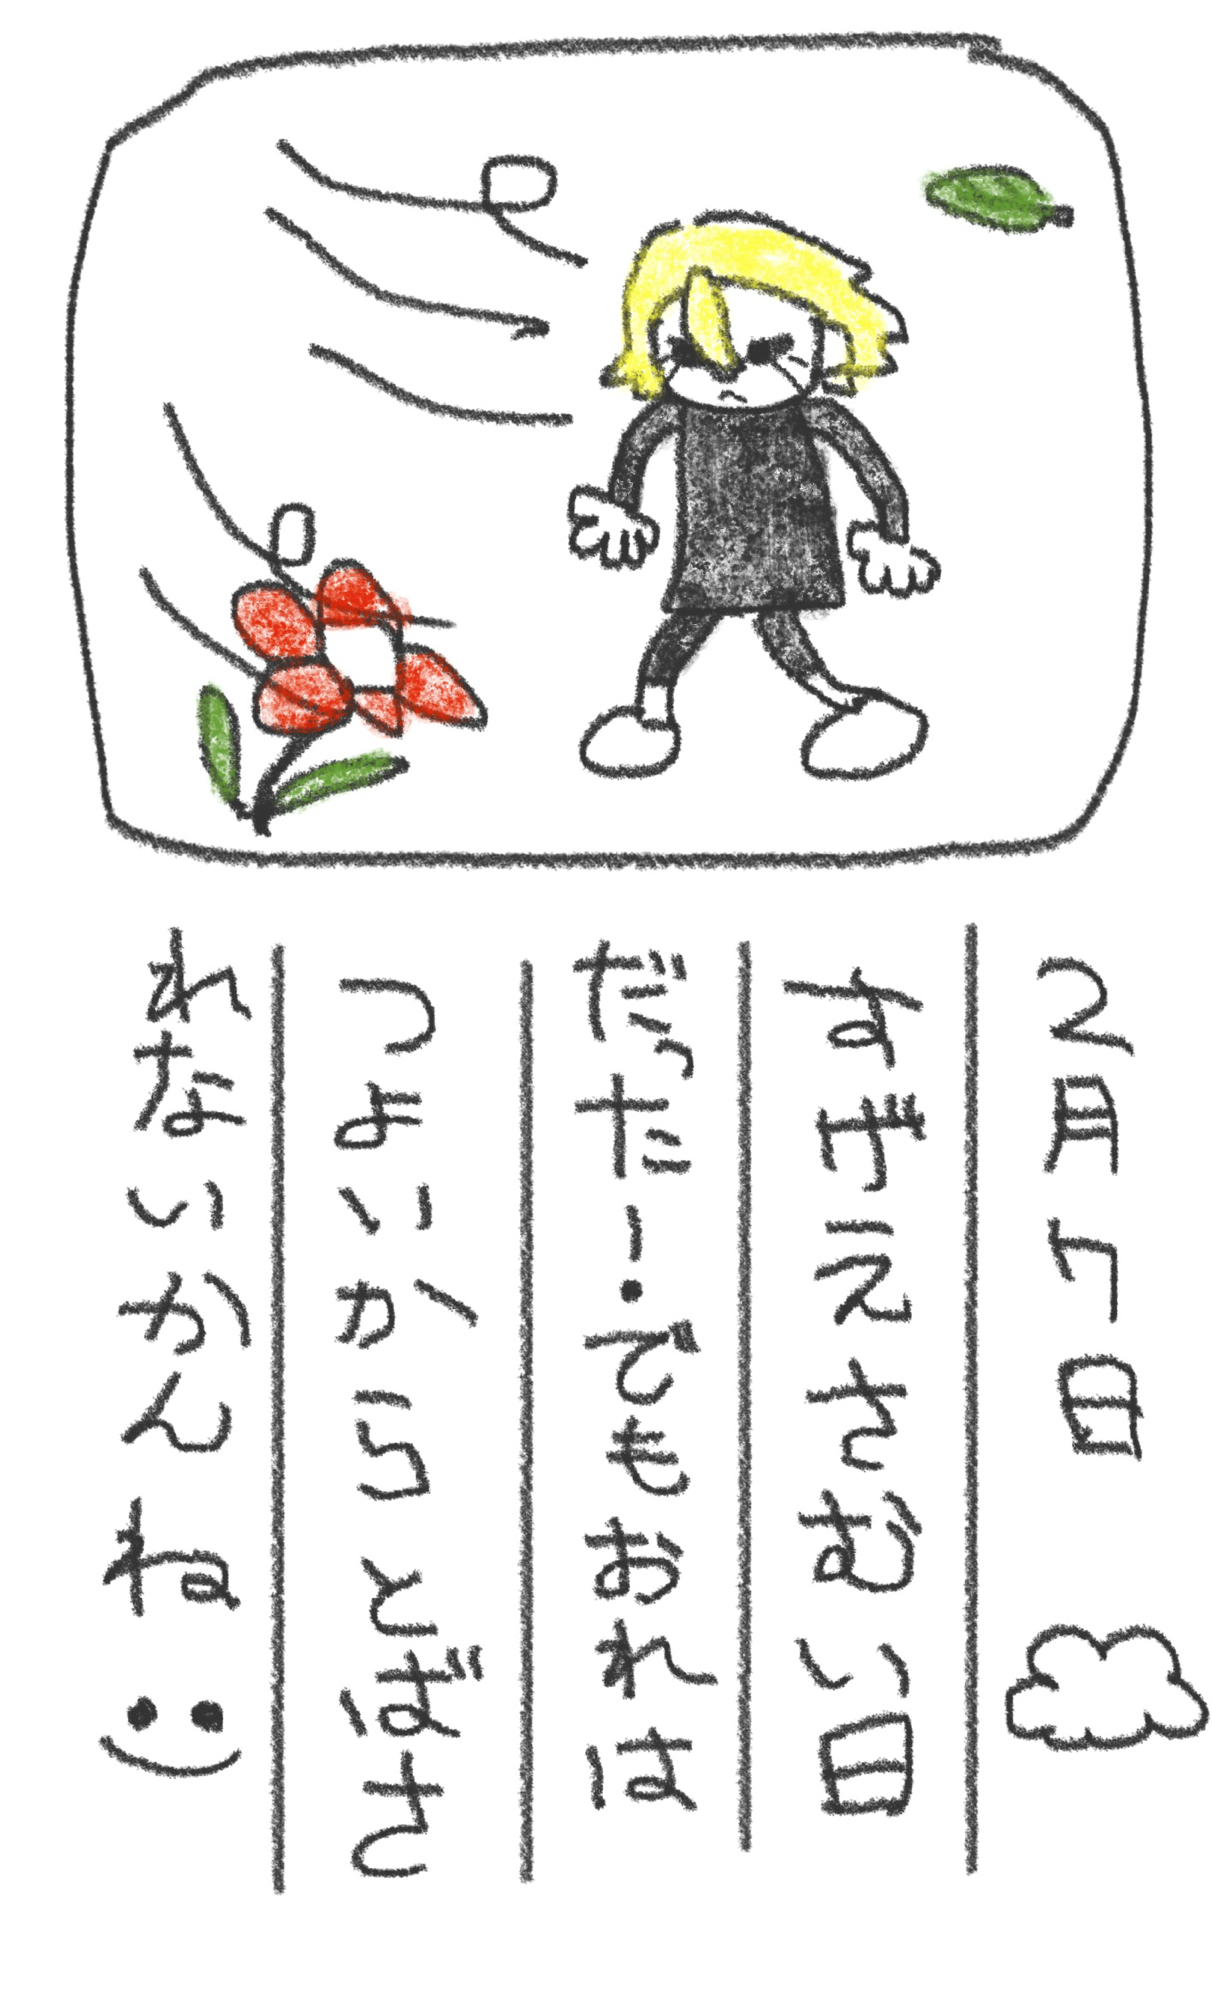 2月7日
すげえさむい日
だった!でもおれは
つよいからとばさ
れないかんね